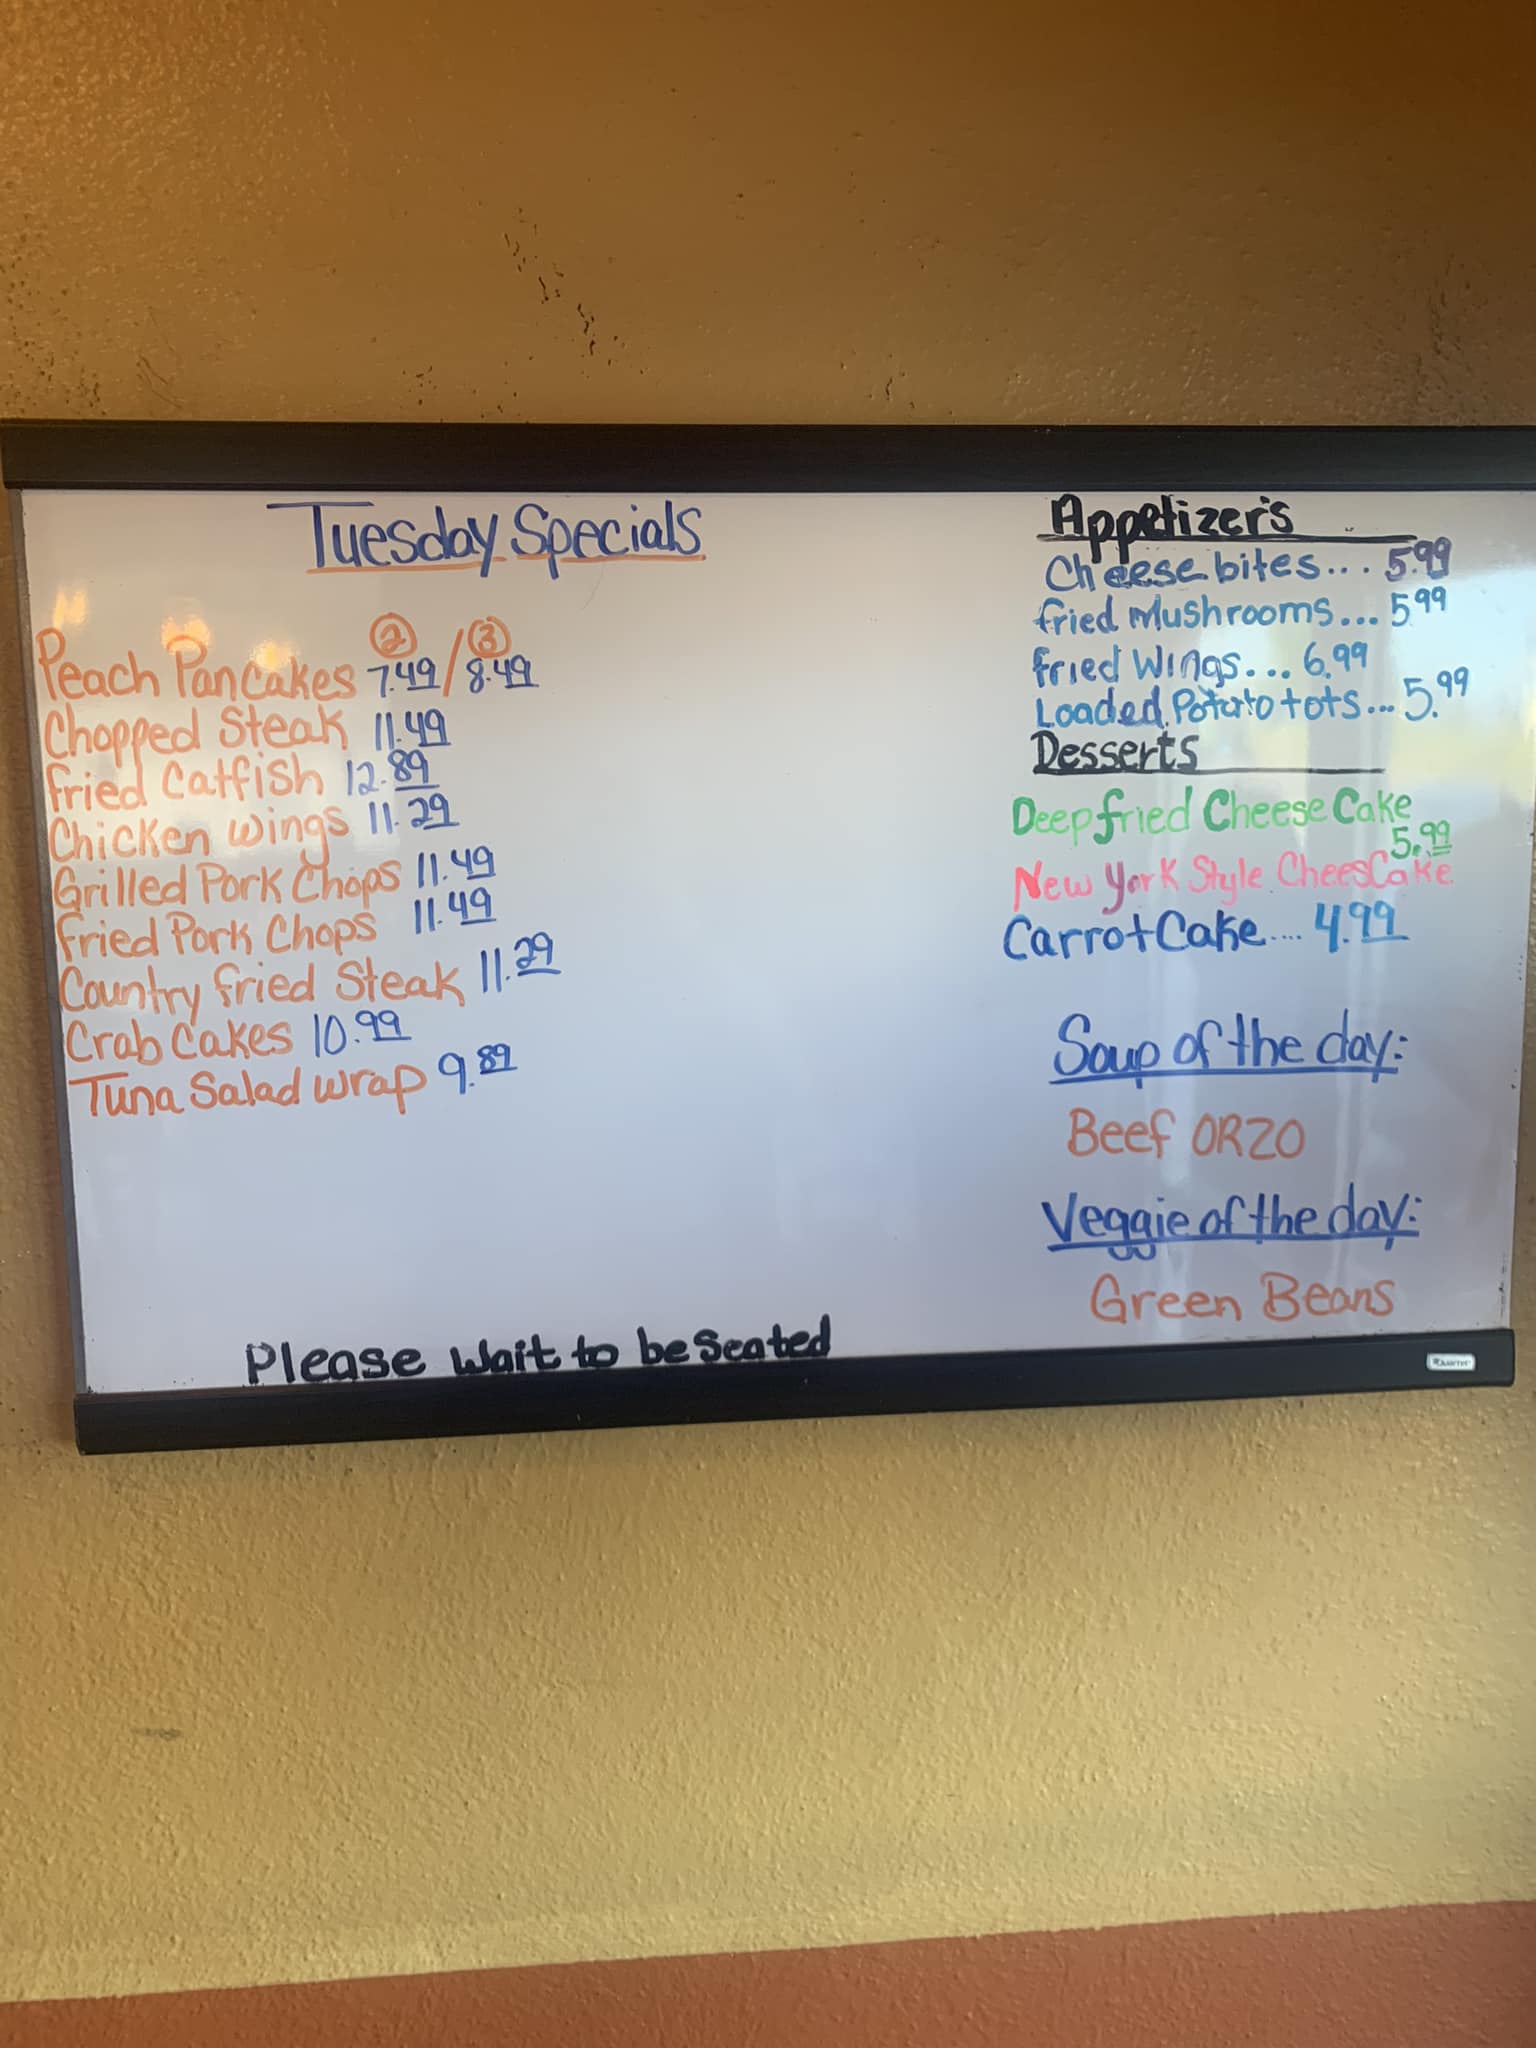 Tuesday Specials
② ③
Peach Pancakes 7.49/8.49
Chopped Steak 11.49
Fried Catfish 12.89
Chicken Wings 11.29
Grilled Pork Chops 11.49
Fried Pork Chops 11.49
Country Fried Steak 11.29
Crab Cakes 10.99
Tuna Salad Wrap 9.89
Please Wait to be Seated
Appetizer's
Cheese bites... 5.99
Fried Mushrooms... 5.99
Fried Wings... 6.99
Loaded Potato tots... 5.99
Desserts
Deep fried Cheese Cake
5.99
New York Style CheesCake
Carrot Cake.... 4.99
Soup of the day:
Beef ORZO
Veggie of the day:
Green Beans
Quartet